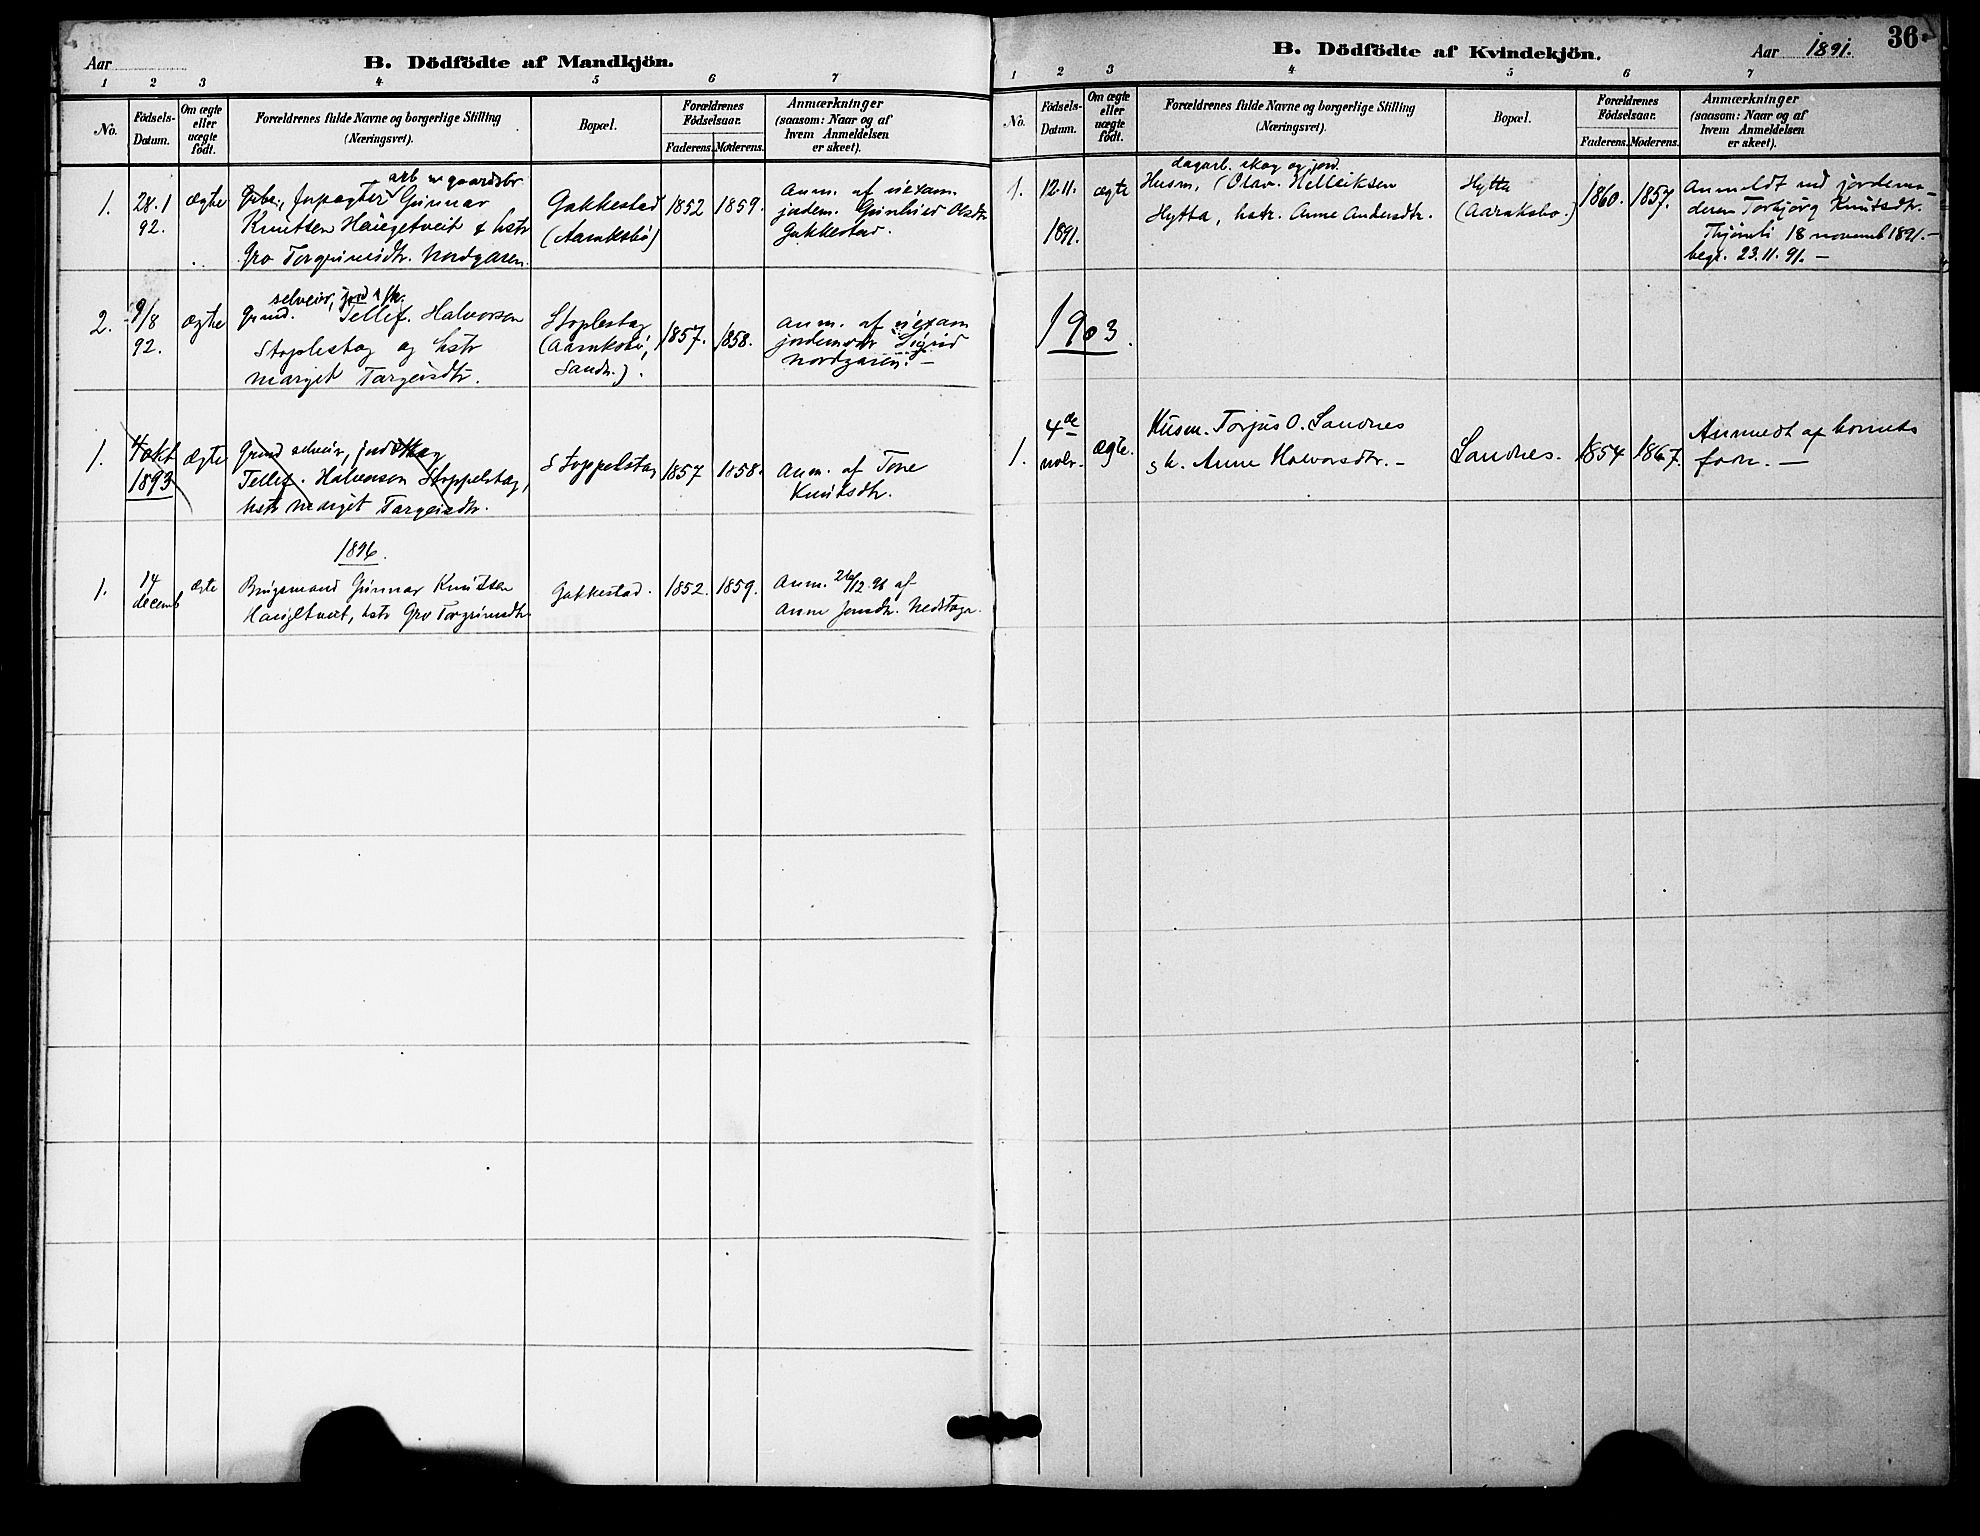 Aar
B. Dödfödte af Mandkjön.
1 2 3 4 5 6 7
No.
Födsels-
Datum.
Om ægte
eller
uægte
födt.
Forældrenes fulde Navne og borgerlige Stilling
(Næringsvei).
Bopæl.
Forældrenes
Födselsaar.
Faderens. Moderens.
Anmærkninger
(saasom: Naar og af
hvem Anmeldelsen
er skeet).
1.
28.1
92.
ægte
arb gaardsbr.
Gunnar
Knutsen Haugetveit & hstr
Gro Torgrimsdtr. Nordgaren.
Gakkestad
(Aamksbø)
1852
1859.
Anm. af uexam.
jordem. Gunhild Olsdtr.
Gakkestad.
2.
9/8
92.
ægte
selveier, jord & sk.
Grmd. Tellef. Halvorsen
Stoplestog og hstr
Margit Targeisdtr.
Stoplestog
(Aamksbø,
Sandn.).
1857.
1858.
Anm. af uexam
jordemodr Sigrid
Nordgaren. —
1.
4 okt
1893
ægte
Grmd selveier, jord & skog
Tellef. Halvorsen Stoppelstog,
hstr Margit Targeisdtr.
Stoppelstog
1857
1858.
Anm. af Tone
Knutsdtr.
1896.
1.
14
decemb
ægte
Brugsmand Gunnar Knutsen
Haugetveit, hstr Gro Torgrimsdtr
Gakkestad.
1852.
1859.
Anm. 26/12.96 af
Anne Jonsdtr. Nedstoga.
B. Dödfödte af Kvindekjön.
Aar 1891.
36
1 2 3 4 5 6 7
No.
Födsels-
Datum.
Om ægte
eller
uægte
födt.
Forældrenes fulde Navne og borgerlige Stilling
(Næringsvei).
Bopæl.
Forældrenes
Födselsaar.
Faderens. Moderens.
Anmærkninger
(saasom: Naar og af
hvem Anmeldelsen
er skeet).
1.
12.11.
1891.
ægte
dagarb. skog og jord.
Husm, (Olav. Helleiksen
Hytta, hstr. Anne Andersdtr.
Hytta
(Aamksbø.)
1860.
1857.
Anmeldt ved jordemo-
deren Torbjørg Knutsdtr.
18 novemb 1891. —
begr. 23.11.91. —
1903.
1.
4de
novbr.
ægte.
Husm. Torjus O. Sandnes
Anne Halvorsdtr. —
Sandnes.
1854
1867.
Anmeldt af barnets
fader. —